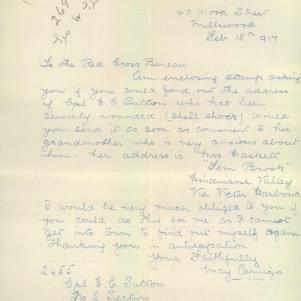 269
W
S.L
40 Wood Street
Millswood
Feb 18th 1917
To the Red Cross Bureau
Am enclosing stamps asking
you if you could find out the address
of Cpl E G Sutton who has been
severely wounded, (shell shock) would
you send it as soon as convenient to his
grandmother who is very anxious about
him. her address is Mrs Haskett
"Fern Brook"
Hindmarsh Valley
Via Victor Harbour
I would be very much obliged to you if
you could do this for me as I cannot
get into town to find out myself again
Thanking you in anticipation
Your Faithfully
May
2455
Cpl E. G. Sutton
No 2 Section